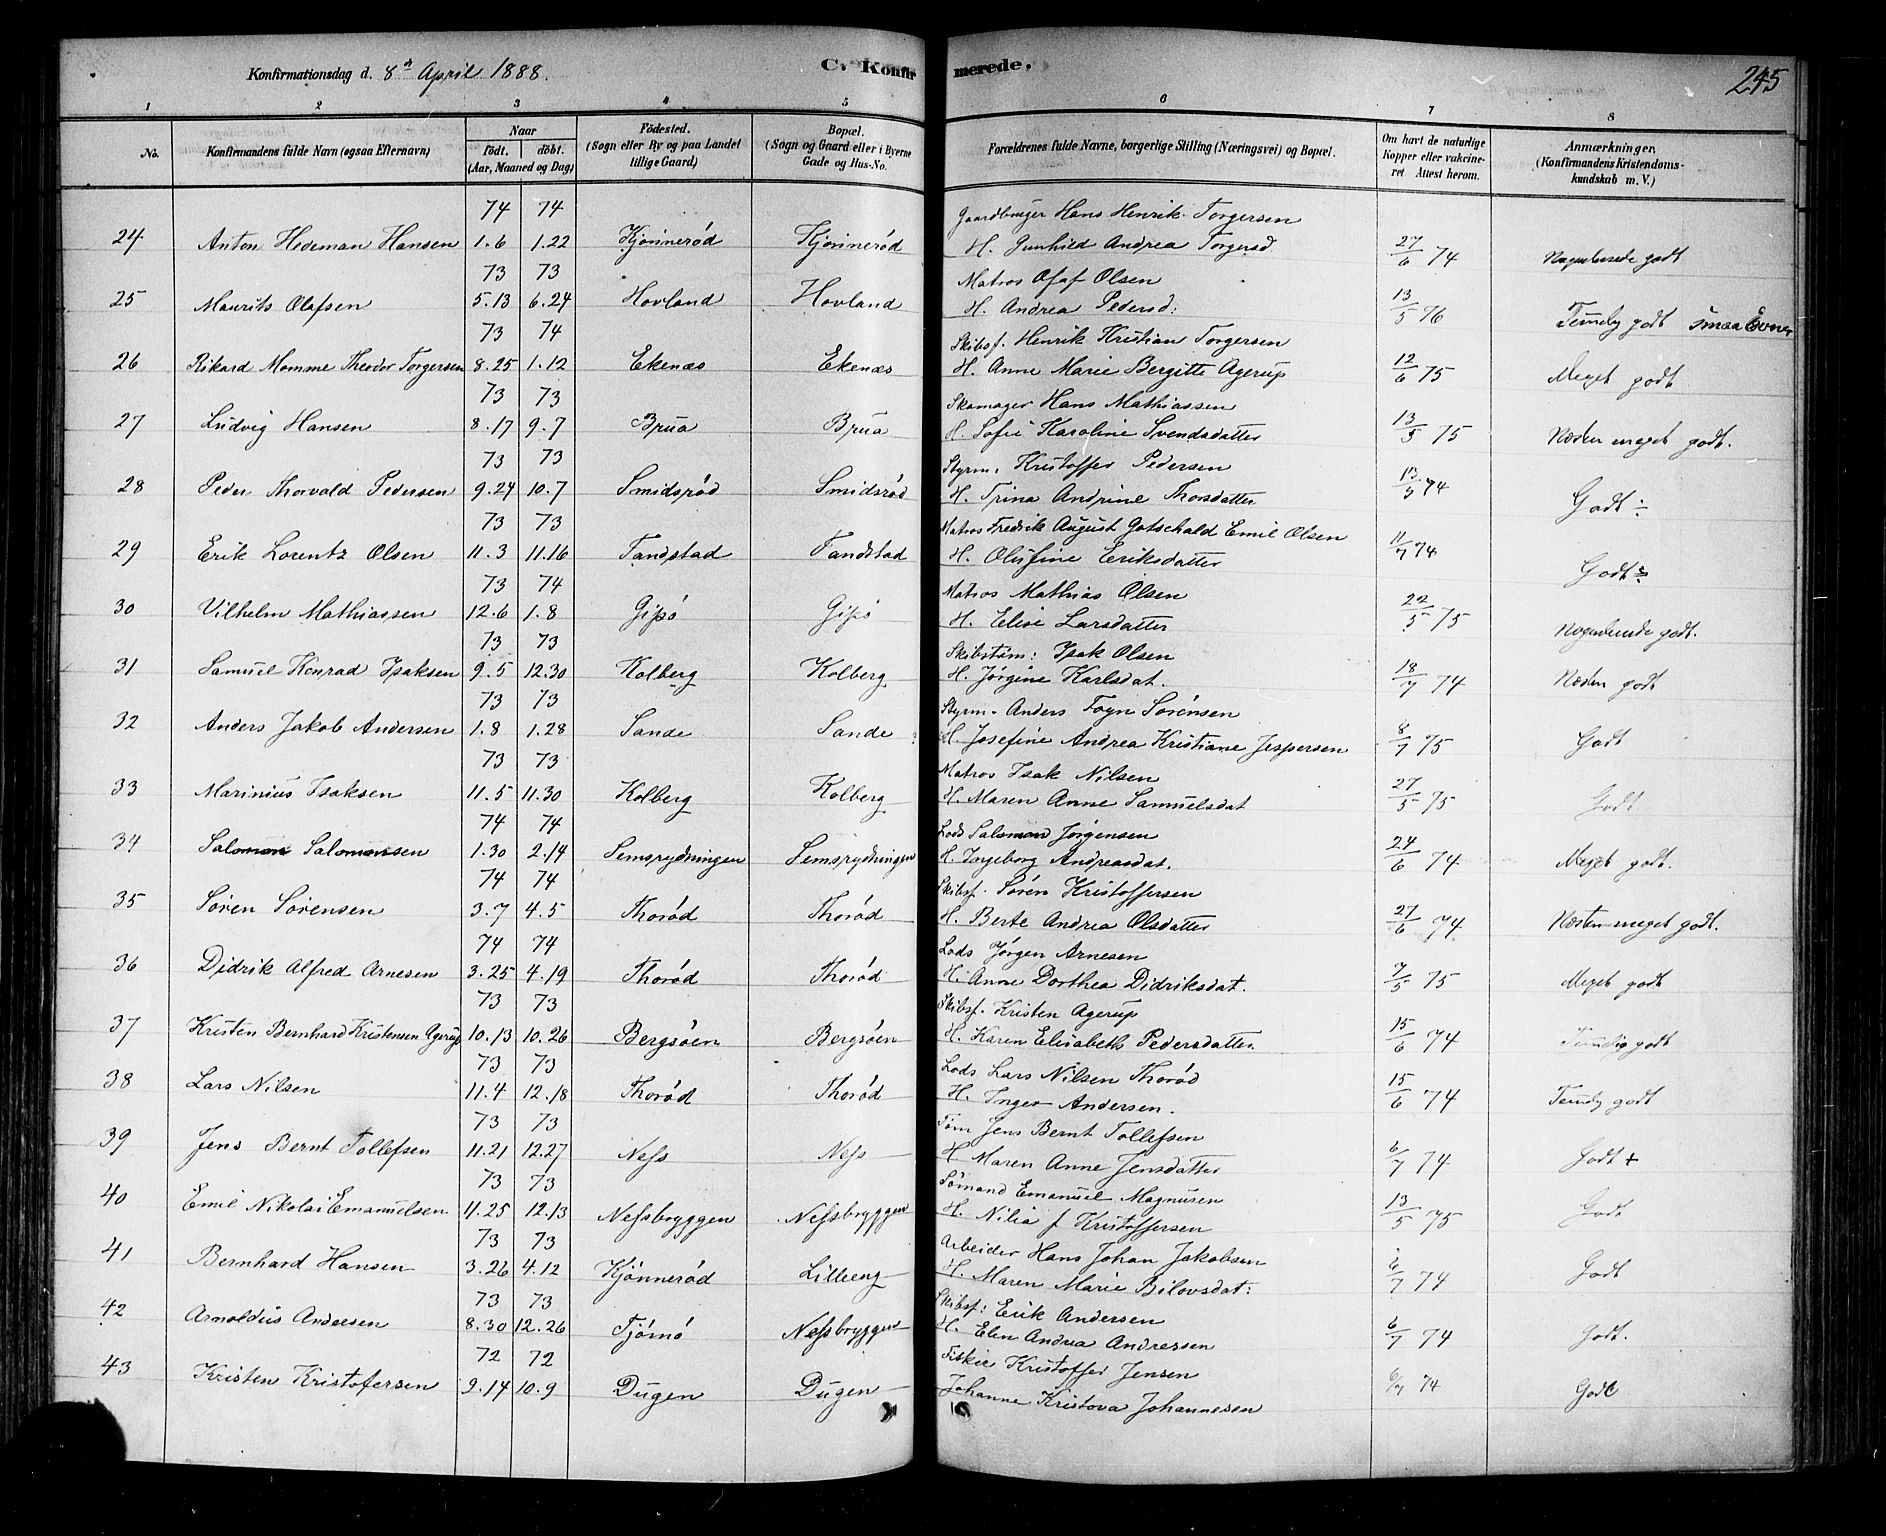 Konfirmationsdag d. 8de April 1888. C. Konfirmerede. 245
1 2 3 4 5 6 7 8
No. Konfirmandens fulde Navn (ogsaa Efternavn) Naar födt. döbt. (Aar, Maaned og Dag) Födested. (Sogn eller By og paa Landet tillige Gaard) Bopæl. (Sogn og Gaard eller i Byerne Gade og Hus-No. Forældrenes fulde Navne, borgerlige Stilling (Næringsvei) og Bopæl. Om havt de naturlige Kopper eller vakcineret Attest herom. Anmærkninger, (Konfirmandens Kristendomskundskab m. V.)
74 74 Gaardbruger Hans Henrik Torgersen
24 Anton Hedeman Hansen 1.6 1.22 Kjönneröd Kjönneröd H. Gunhild Andrea Torgersd 27/6 74 Nogenlunde godt
73 73 Matros Olaf Olsen
25 Maurits Olafsen 5.13 6.24 Hovland Hovland H. Andrea Pedersd: 13/5 76 Temlig godt smaa Evner
73 74 Skibsf. Henrik Kristian Torgersen
26 Rikard Momme Theodor Torgersen 8.25 1.12 Ekenæs Ekenæs H. Anne Marie Bergitte Agerup 12/6 75 Meget godt
73 73 Skomager Hans Mathiassen
27 Ludvig Hansen 8.17 9.7 Brua Brua H. Sofie Karoline Svendsdatter 13/5 75 Næsten meget godt.
73 73 Styrm: Kristoffer Pedersen
28 Peder Thorvald Pedersen 9.24 10.7 Smidsröd Smidsröd H. Trina Andrine Thorsdatter 74 Godt ÷
73 73 Matros Fredrik August Gotschald Emil Olsen
29 Erik Lorentz Olsen 11.3 11.16 Tandstad Tandstad H. Olufine Eriksdatter 11/7 74 Godt ÷
73 74 Matros Mathias Olsen
30 Vilhelm Mathiassen 12.6 1.8 Gipö Gipö H. Elise Larsdatter 22/5 75 Nogenlunde godt.
73 73 Skibstöm: Isak Olsen
31 Samuel Konrad Isaksen 9.5 12.30 Kolberg Kolberg H. Jörgine Karlsdat. 18/7 74 Næsten godt
73 73 Styrm. Anders Foyn Sörensen
32 Anders Jakob Andersen 1.8 1.28 Sande Sande H. Josefine Andrea Kristiane Jespersen 8/7 75 Godt
73 73 Matros Isak Nilsen
33 Marinius Isaksen 11.5 11.30 Kolberg Kolberg H. Maren Anne Samuelsdat 27/5 75 Godt
74 74 Lods Salomon Jörgensen
34 Salomon Salomonsen 1.30 2.14 Semsrydningen Semsrydningen H. Ingeborg Andreasdat. 24/6 74 Meget godt.
74 74 Skibsf. Sören Kristoffersen
35 Sören Sörensen 3.7 4.5 Thoröd Thoröd H. Berte Andrea Olsdatter 27/6 74 Næsten meget godt.
74 74 Lods Jörgen Arnesen
36 Didrik Alfred Arnesen 3.25 4.19 Thoröd Thoröd H. Anne Dorthea Didriksdat. 7/5 75 Meget godt
73 73 Skibsf. Kristen Agerup
37 Kristen Bernhard Kristensen Agerup 10.13 10.26 Bergsöen Bergsöen H. Karen Elisabeth Pedersdatter 15/6 74 Temlig godt
73 73 Lods Lars Nilsen Thoröd
38 Lars Nilsen 11.4 12.18 Thoröd Thoröd H. Inger Andersen. 15/6 74 Temlig godt
73 73 Töm Jens Bernt Tollefsen
39 Jens Bernt Tollefsen 11.21 12.27 Nefs Nefs H. Maren Anne Jensdatter 6/7 74 Godt +
73 73 Sömand Emanuel Magnusen
40 Emil Nikolai Emanuelsen 11.25 12.13 Nefsbryggen Nefsbryggen H. Nilia f Kristoffersen 13/5 75 Godt
73 73 Arbeider Hans Johan Jakobsen
41 Bernhard Hansen 3.26 4.12 Kjönneröd Lilleeng H. Maren Marie Bilovsdat: 6/7 74 Godt
73 73 Skibsf: Erik Andersen
42 Arnoldus Andersen 8.30 12.26 Tjömö Nefsbryggen H. Elen Andrea Andressen 6/7 74 Godt.
72 72 Fisker Kristoffer Jensen
43 Kristen Kristofersen 9.14 10.9 Dugen Dugen Johanne Kristova Johannesen 6/7 74 Godt